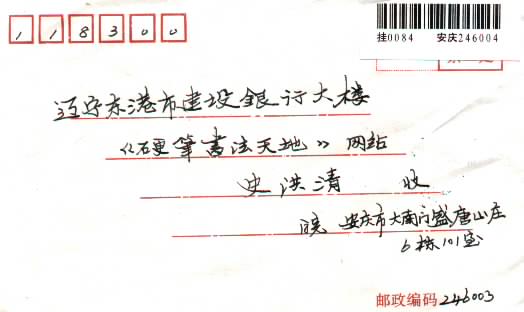 挂0084 安庆246004
118300
辽宁东港市建设銀行大楼
《硬筆書法天地》网站
史洪清 收
皖 安庆市大南门盛唐山庄
6栋101室
邮政编码 246003